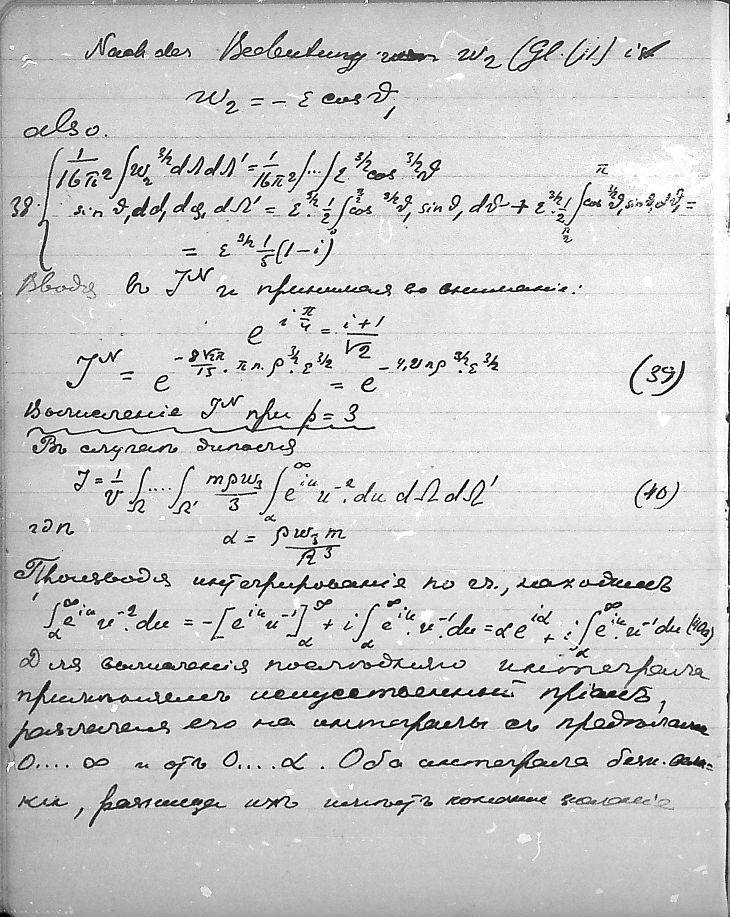 Nach der Bedeutung von w₂ (Gl. (11) ist
w₂ = − ε cos ϑ,
also.
1/16π² ∫ w₂^3/2 dΩ dΩ' = 1/16π² ∫...∫ ε^3/2 cos^3/2 ϑ
38. sin ϑ, dϑ, dφ, dΩ' = ε^3/2 · 1/2 ∫ cos^3/2 ϑ, sin ϑ, dϑ + ε^3/2 · 1/2 ∫_{π/2}^{π} cos^3/2 ϑ, sin ϑ, dϑ =
= ε^3/2 1/5 (1−i)
Вводя въ J^N и принимая во вниманіе:
e^{i π/4} = (i+1)/√2
J^N = e^{−8√2π/15 · π n · ρ^3/2 · ε^3/2} = e^{−4,21 n ρ^3/2 · ε^3/2} (39)
Вычисленіе J^N при p = 3
Въ случаѣ диполя
J = 1/V ∫_Ω .... ∫_Ω' mρw₃/3 ∫_α^∞ e^{iu} u^{−2} du dΩ dΩ' (40)
гдѣ α = ρw₃m/R³
Производя интегрированіе по ч., находимъ
∫_α^∞ e^{iu} u^{−2} du = −[e^{iu} u^{−1}]_α^∞ + i ∫_α^∞ e^{iu} u^{−1} du = α e^{iα} + i ∫_α^∞ e^{iu} u^{−1} du (40a)
Для вычисленія послѣдняго интеграла
примѣняемъ искусственный пріемъ,
разчленяя его на интегралы съ предѣлами
0.... ∞ и отъ 0.... α. Оба интеграла безк. вели=
ки, разница ихъ имѣетъ конечное